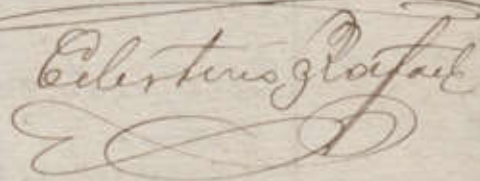 Celestino Rafael